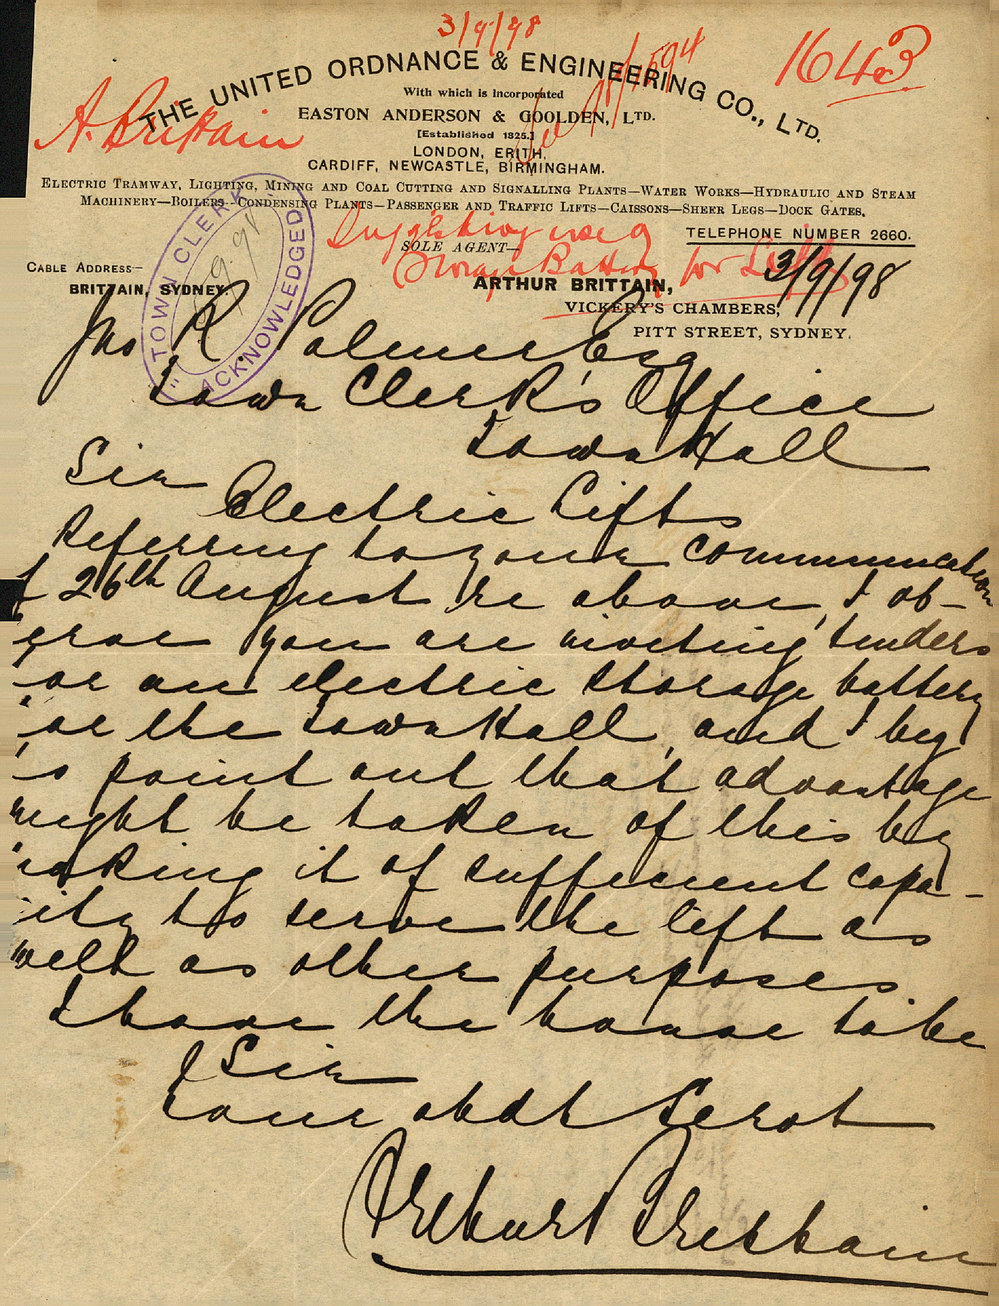 3/9/98
1643
THE UNITED ORDNANCE & ENGINEERING CO., LTD.
With which is Incorporated
A. Brittain
EASTON ANDERSON & GOOLDEN, LTD.
[Established 1825.]
LONDON, ERITH,
CARDIFF, NEWCASTLE, BIRMINGHAM.
ELECTRIC TRAMWAY, LIGHTING, MINING AND COAL CUTTING AND SIGNALLING PLANTS—WATER WORKS—HYDRAULIC AND STEAM
MACHINERY—BOILERS—CONDENSING PLANTS—PASSENGER AND TRAFFIC LIFTS—CAISSONS—SHEER LEGS—DOCK GATES.
Suggesting use of
Storage Battery for Lifts
TELEPHONE NUMBER 2660.
SOLE AGENT—
CABLE ADDRESS—
BRITTAIN, SYDNEY.
ARTHUR BRITTAIN,
3/9/98
VICKERY'S CHAMBERS,
PITT STREET, SYDNEY.
TOWN CLERK
ACKNOWLEDGED
Jno R. Palmer Esq
Town Clerk's Office
Town Hall
Sir
Electric Lifts
Referring to your communication
of 26th August re above, I ob-
serve you are inviting tenders
for an electric storage battery
for the Town Hall, and I beg
to point out that advantage
might be taken of this by
making it of sufficient capa-
city to serve the lift as
well as other purposes
I have the honor to be
Sir
Your obdt Servt
Arthur Brittain